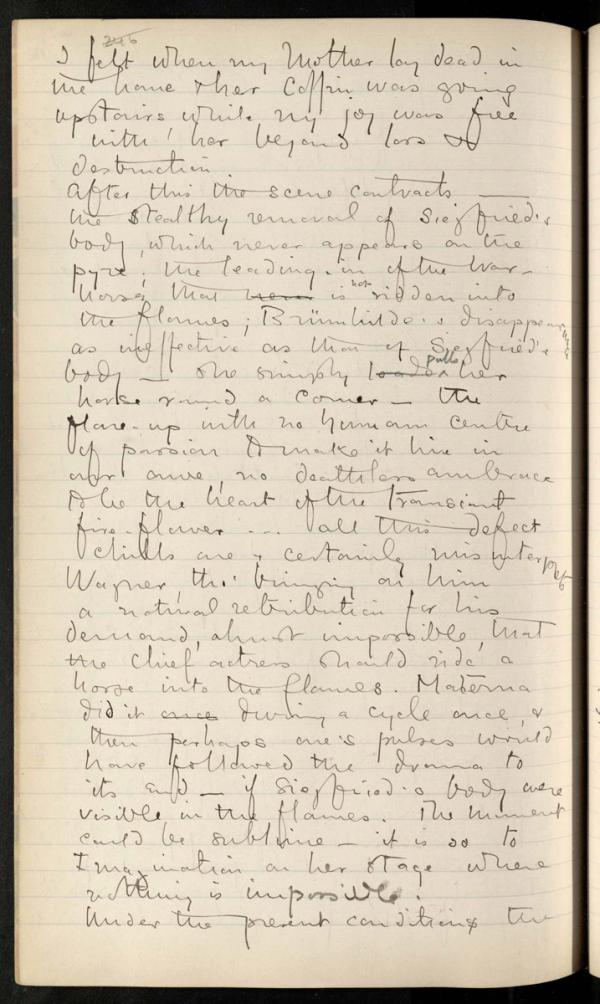 246
I felt when my Mother lay dead in
the home & her Coffin was going
upstairs while my joy was free
with her beyond loss &
destruction.
After this the scene contracts —
the stealthy removal of Siegfried's
body, which never appears on the
pyre; the leading-in of the War-
horse, that is not ridden into
the flames; Brünnhilde's disappearance
as ineffective as that of Siegfried's
body — she simply pulls her
horse round a corner — the
flare-up with no human centre
of passion to make it live in
our awe, no deathless embrace
to be the heart of the transient
fire-flower ... all this defect
chills one & certainly misinterprets
Wagner, tho' bringing on him
a natural retribution for his
demand, almost impossible, that
the chief actress should ride a
horse into the flames. Materna
did it once during a cycle once, &
then perhaps one's pulses would
have followed the drama to
its end — if Siegfried's body were
visible in the flames. The moment
could be sublime — it is so to
Imagination on her stage where
nothing is impossible.
Under the present conditions the